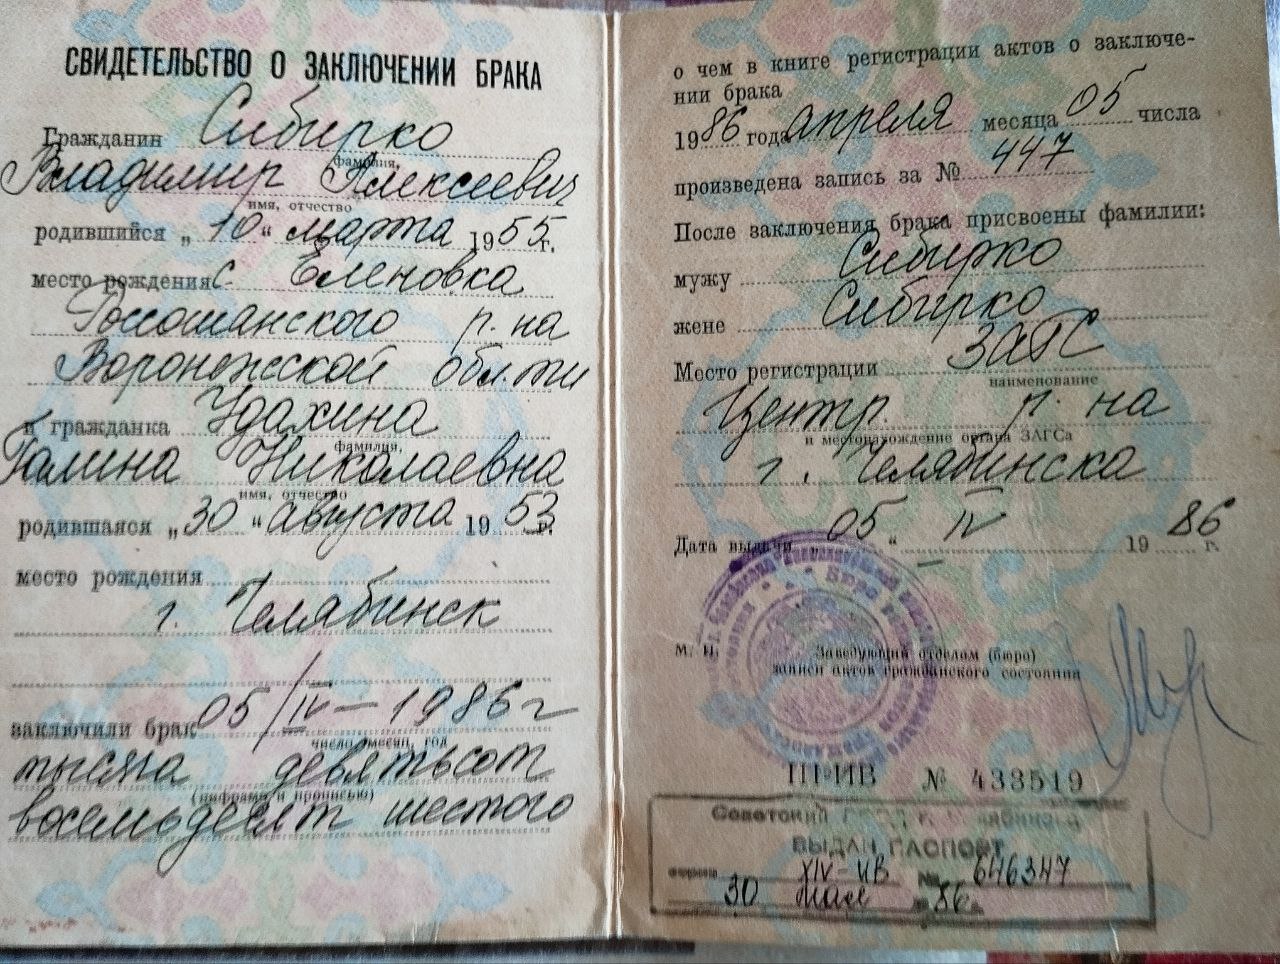 СВИДЕТЕЛЬСТВО О ЗАКЛЮЧЕНИИ БРАКА
Гражданин Сибирко
фамилия,
Владимир Алексеевич
имя, отчество
родившийся „ 10 “ марта 1955 г.
место рождения с. Еленовка
Россошанского р-на
Воронежской обл-ти
и гражданка Удахина
фамилия,
Галина Николаевна
имя, отчество
родившаяся „ 30 “ августа 1953 г.
место рождения
г. Челябинск
заключили брак 05/IV – 1986 г
число, месяц, год
тысяча девятьсот
(цифрами и прописью)
восемьдесят шестого
о чем в книге регистрации актов о заключе-
нии брака
1986 года апреля месяца 05 числа
произведена запись за № 447
После заключения брака присвоены фамилии:
мужу Сибирко
жене Сибирко
Место регистрации ЗАГС
наименование
Центр. р-на
и местонахождение органа ЗАГСа
г. Челябинска
Дата выдачи „ 05 “ IV 1986 г.
М. П. Заведующий отделом (бюро)
записи актов гражданского состояния
III-ИВ № 433519
Советский г. Челябинска
ВЫДАН ПАСПОРТ
XIV-ИВ № 646347
30 мая 86